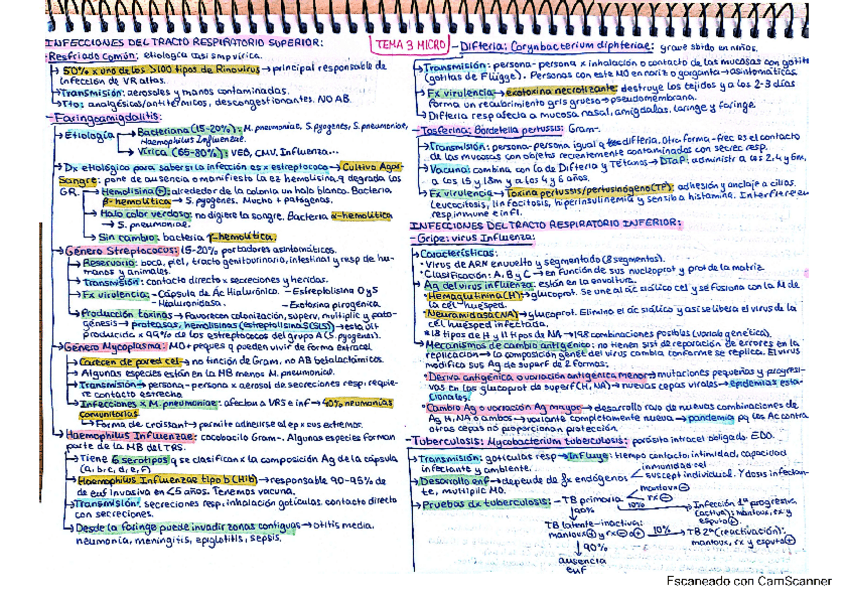 TEMA 3 MICRO
INFECCIONES DEL TRACTO RESPIRATORIO SUPERIOR:
- Resfriado común: etiología casi siempre vírica.
→ 50% x uno de los >100 tipos de Rinovirus → principal responsable de
infección de VR altas.
→ Transmisión: aerosoles y manos contaminadas.
→ Tto: analgésicos/antitérmicos, descongestionantes. NO AB.
- Faringoamigdalitis:
→ Etiología → Bacteriana (15-20%): M. pneumoniae, S. pyogenes, S. pneumoniae,
Haemophilus Influenzae.
→ Vírica (65-80%): VEB, CMV, Influenza...
→ Dx etiológico para saber si la infección es x estreptococo → Cultivo Agar-
Sangre: pone de ausencia o manifiesto la ez hemolisina q degrada los
GR. → Hemolisina ⊕: alrededor de la colonia un halo blanco. Bacteria
β-hemolítica → S. pyogenes. Mucho + patógenas.
→ Halo color verdoso: no digiere la sangre. Bacteria α-hemolítica
→ S. pneumoniae.
→ Sin cambio: bacteria γ-hemolítica.
→ Género Streptococus: 15-20% portadores asintomáticos.
→ Reservorio: boca, piel, tracto genitourinario, intestinal y resp de hu-
manos y animales.
→ Transmisión: contacto directo x secreciones y heridas.
→ Fx virulencia: - Cápsula de Ac Hialurónico. - Estreptolisina O y S
- Hialuronidasa. - Exotoxina pirogénica.
→ Producción toxinas → Favorecen colonización, superv, multiplic y pato-
génesis → proteasas, hemolisinas (estreptolisina S(SLS)) → esta últ
producida x 99% de los estreptococos del grupo A (S. pyogenes).
→ Género Mycoplasma: MO + peques q pueden vivir de forma extracel.
→ Carecen de pared cel → no tinción de Gram, no AB betalactámicos.
→ Algunas especies están en la MB menos M. pneumoniae.
→ Transmisión → persona-persona x aerosol de secreciones resp, requie-
re contacto estrecho
→ Infecciones x M. pneumoniae: afectan a VRS e inf → 40% neumonías
comunitarias
→ Forma de croissant → permite adherirse al ep x sus extremos.
→ Haemophilus Influenzae: cocobacilo Gram-. Algunas especies forman
parte de la MB del TRS.
→ Tiene 6 serotipos q se clasifican x la composición Ag de la cápsula
(a, b, c, d, e, f)
→ Haemophilus Influenzae tipo b (HIb) → responsable 90-95% de
de enf invasiva en <5 años. Tenemos vacuna.
→ Transmisión: secreciones resp. inhalación gotículas, contacto directo
con secreciones.
→ Desde la faringe puede invadir zonas contiguas → otitis media,
neumonía, meningitis, epiglotitis, sepsis.
- Difteria: Corynbacterium diphteriae: grave sbtdo en niños.
→ Transmisión: persona-persona x inhalación o contacto de las mucosas con gotits
(gotitas de Flügge). Personas con este MO en nariz o garganta → asintomáticas
→ Fx virulencia → exotoxina necrotizante: destruye los tejidos y a los 2-3 días
forma un recubrimiento gris grueso → pseudomembrana.
→ Difteria resp afecta a mucosa nasal, amígdalas, laringe y faringe.
- Tosferina: Bordetella pertussis: Gram-.
→ Transmisión: persona-persona igual q difteria. Otra forma - frec es el contacto
de las mucosas con objetos recientemente contaminados con secrec resp.
→ Vacuna: combina con la de Difteria y Tétanos → DTaP: administr a los 2, 4 y 6m,
a los 15 y 18m y a los 4 y 6 años.
→ Fx virulencia → Toxina pertussis/pertusinógeno (TP): adhesión y anclaje a cilios.
Leucocitosis, linfocitosis, hiperinsulinemia y sensib a histamina. Interfiere en
resp inmune e infl.
INFECCIONES DEL TRACTO RESPIRATORIO INFERIOR:
- Gripe: virus Influenza:
→ Características:
· Virus de ARN envuelto y segmentado (8 segmentos).
· Clasificación: A, B y C → en función de sus nucleoprot y prot de la matriz.
→ Ag del virus influenza: están en la envoltura.
· Hemaglutinina (H) → glucoprot. Se une al ác siálico cel y se fusiona con la M de
la cel huésped.
· Neuramidasa (NA) → glucoprot. Elimina el ác siálico y así se libera el virus de la
cel huésped infectada.
* 18 tipos de H y 11 tipos de NA → 198 combinaciones posibles (variab genética).
→ Mecanismos de cambio antigénico: no tienen sist de reparación de errores en la
replicación → la composición genét del virus cambia conforme se replica. El virus
modifica sus Ag de superf de 2 formas:
· Deriva antigénica o variación antigénica menor → mutaciones pequeñas y progresi-
vas en las glucoprot de superf (H, NA) → nuevas cepas virales → epidemias esta-
cionales.
· Cambio Ag o variación Ag mayor → desarrollo de nuevas combinaciones de
Ag H, NA o ambos → variante completamente nueva → pandemia pq los Ac contra
otras cepas no proporcionan protección.
- Tuberculosis: Mycobacterium tuberculosis: parásito intracel obligado. EDO.
→ Transmisión: gotículas resp → Influye: tiempo contacto, intimidad, capacidad
infectante y ambiente.
→ Desarrollo enf → depende de fx endógenos → inmunidad cel
suscept individual. Y dosis infectan-
te, multiplic MO.
→ Pruebas dx tuberculosis: - TB primaria → mantoux ⊖
→ rx ⊖
90% 10% → Infección 1ª progresiva
(activa): mantoux, rx y
esputo ⊕.
TB latente-inactiva:
mantoux ⊕ y rx ⊖ o ⊕ 10% → TB 2ª (reactivación):
mantoux, rx y esputo ⊕
↓ 90%
ausencia
enf
Escaneado con CamScanner